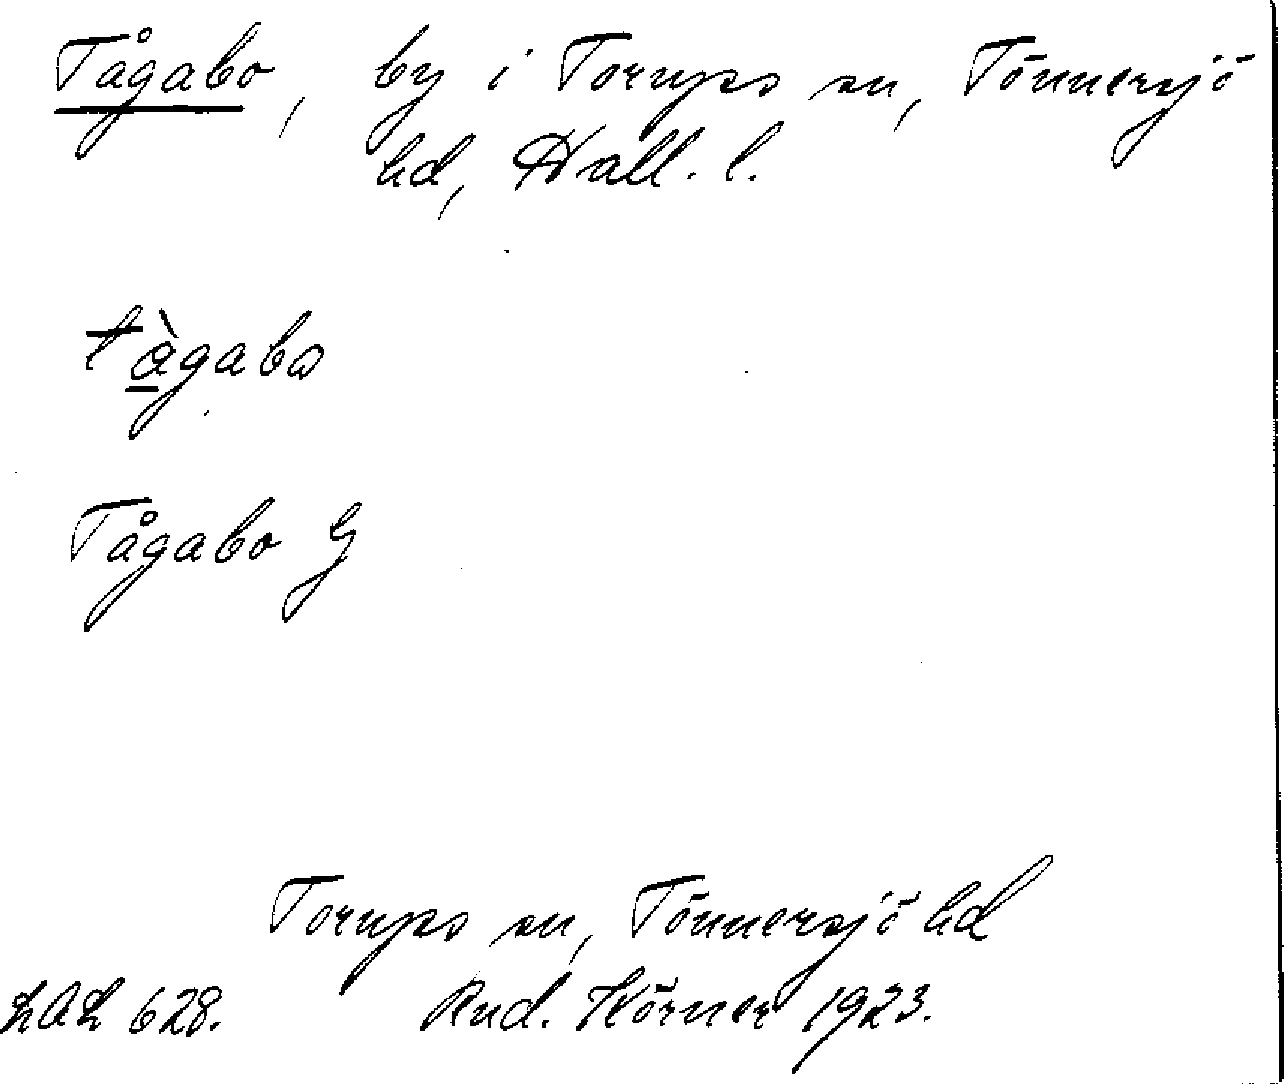 Tågabo, by i Torups sn, Tönnersjö
hd, Hall. l.
tàgabω
Tågabo G
Torups sn, Tönnersjö hd
LAL 628. Rud. Körner 1923.